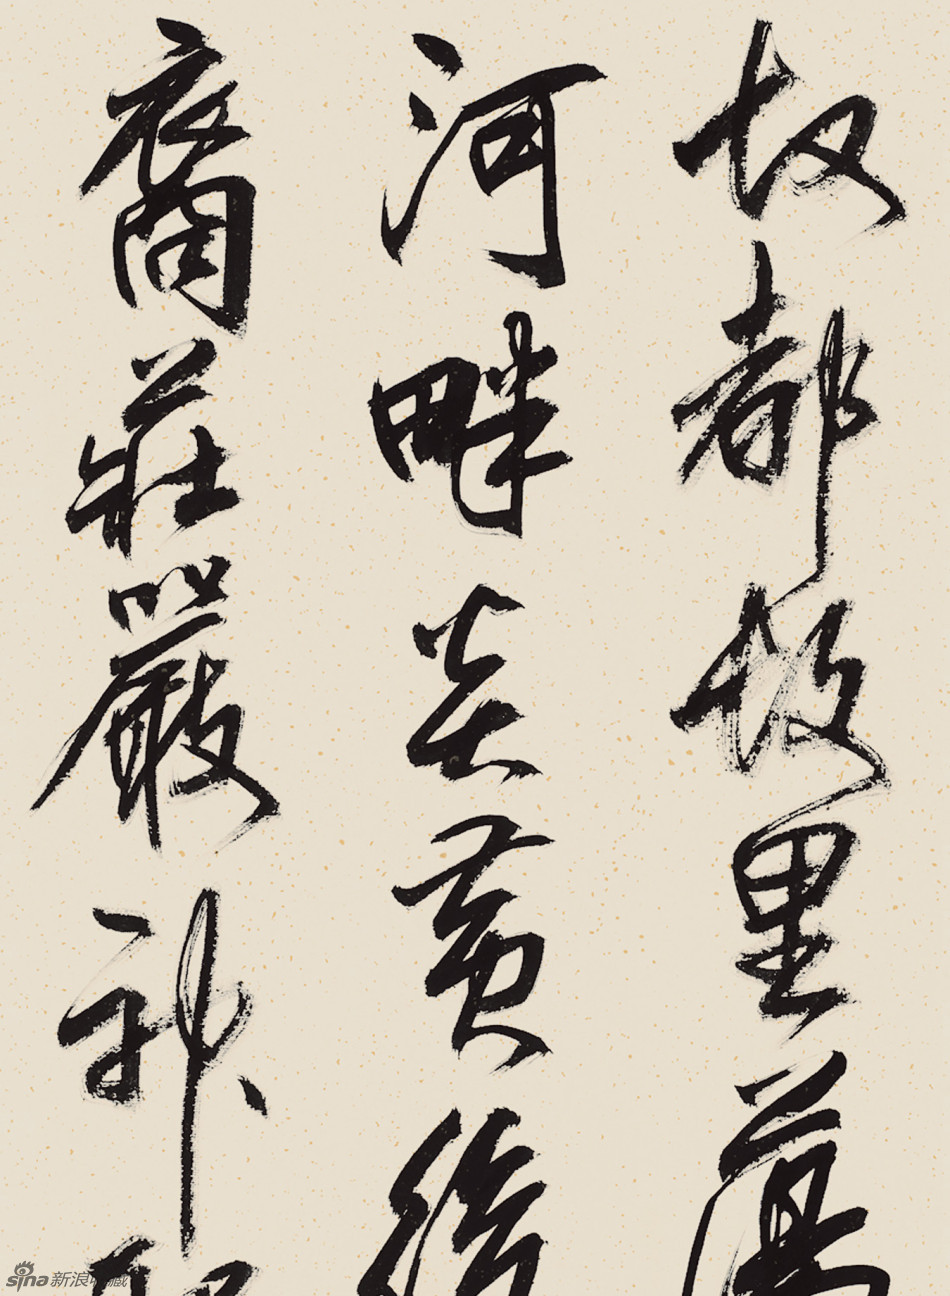 故都故里
河畔炎黃後
裔莊嚴神
sina新浪收藏